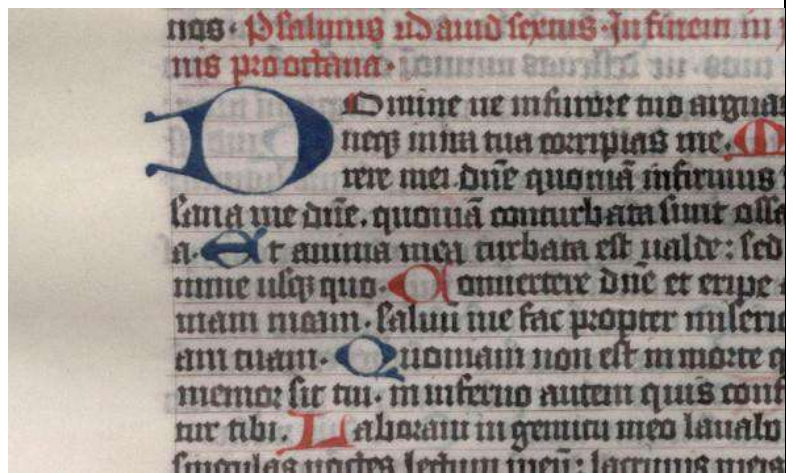 nos. Psalmus Dauid sextus. In finem in
nis pro octaua.
Domine ne in furore tuo arguas
neq; in ira tua corripias me. M
rere mei dn̄e quoniā infirmus
sana me dn̄e. quoniā conturbata sunt ossa
a. Et anima mea turbata est ualde: sed
mine usq; quo. Conuertere dn̄e et eripe a
mam meam. saluū me fac propter miseric
am tuam. Quoniam non est in morte q
memor sit tui. in inferno autem quis conf
tur tibi. Laboraui in gemitu meo lauabo
singulas noctes lectum meū: lacrimis meis